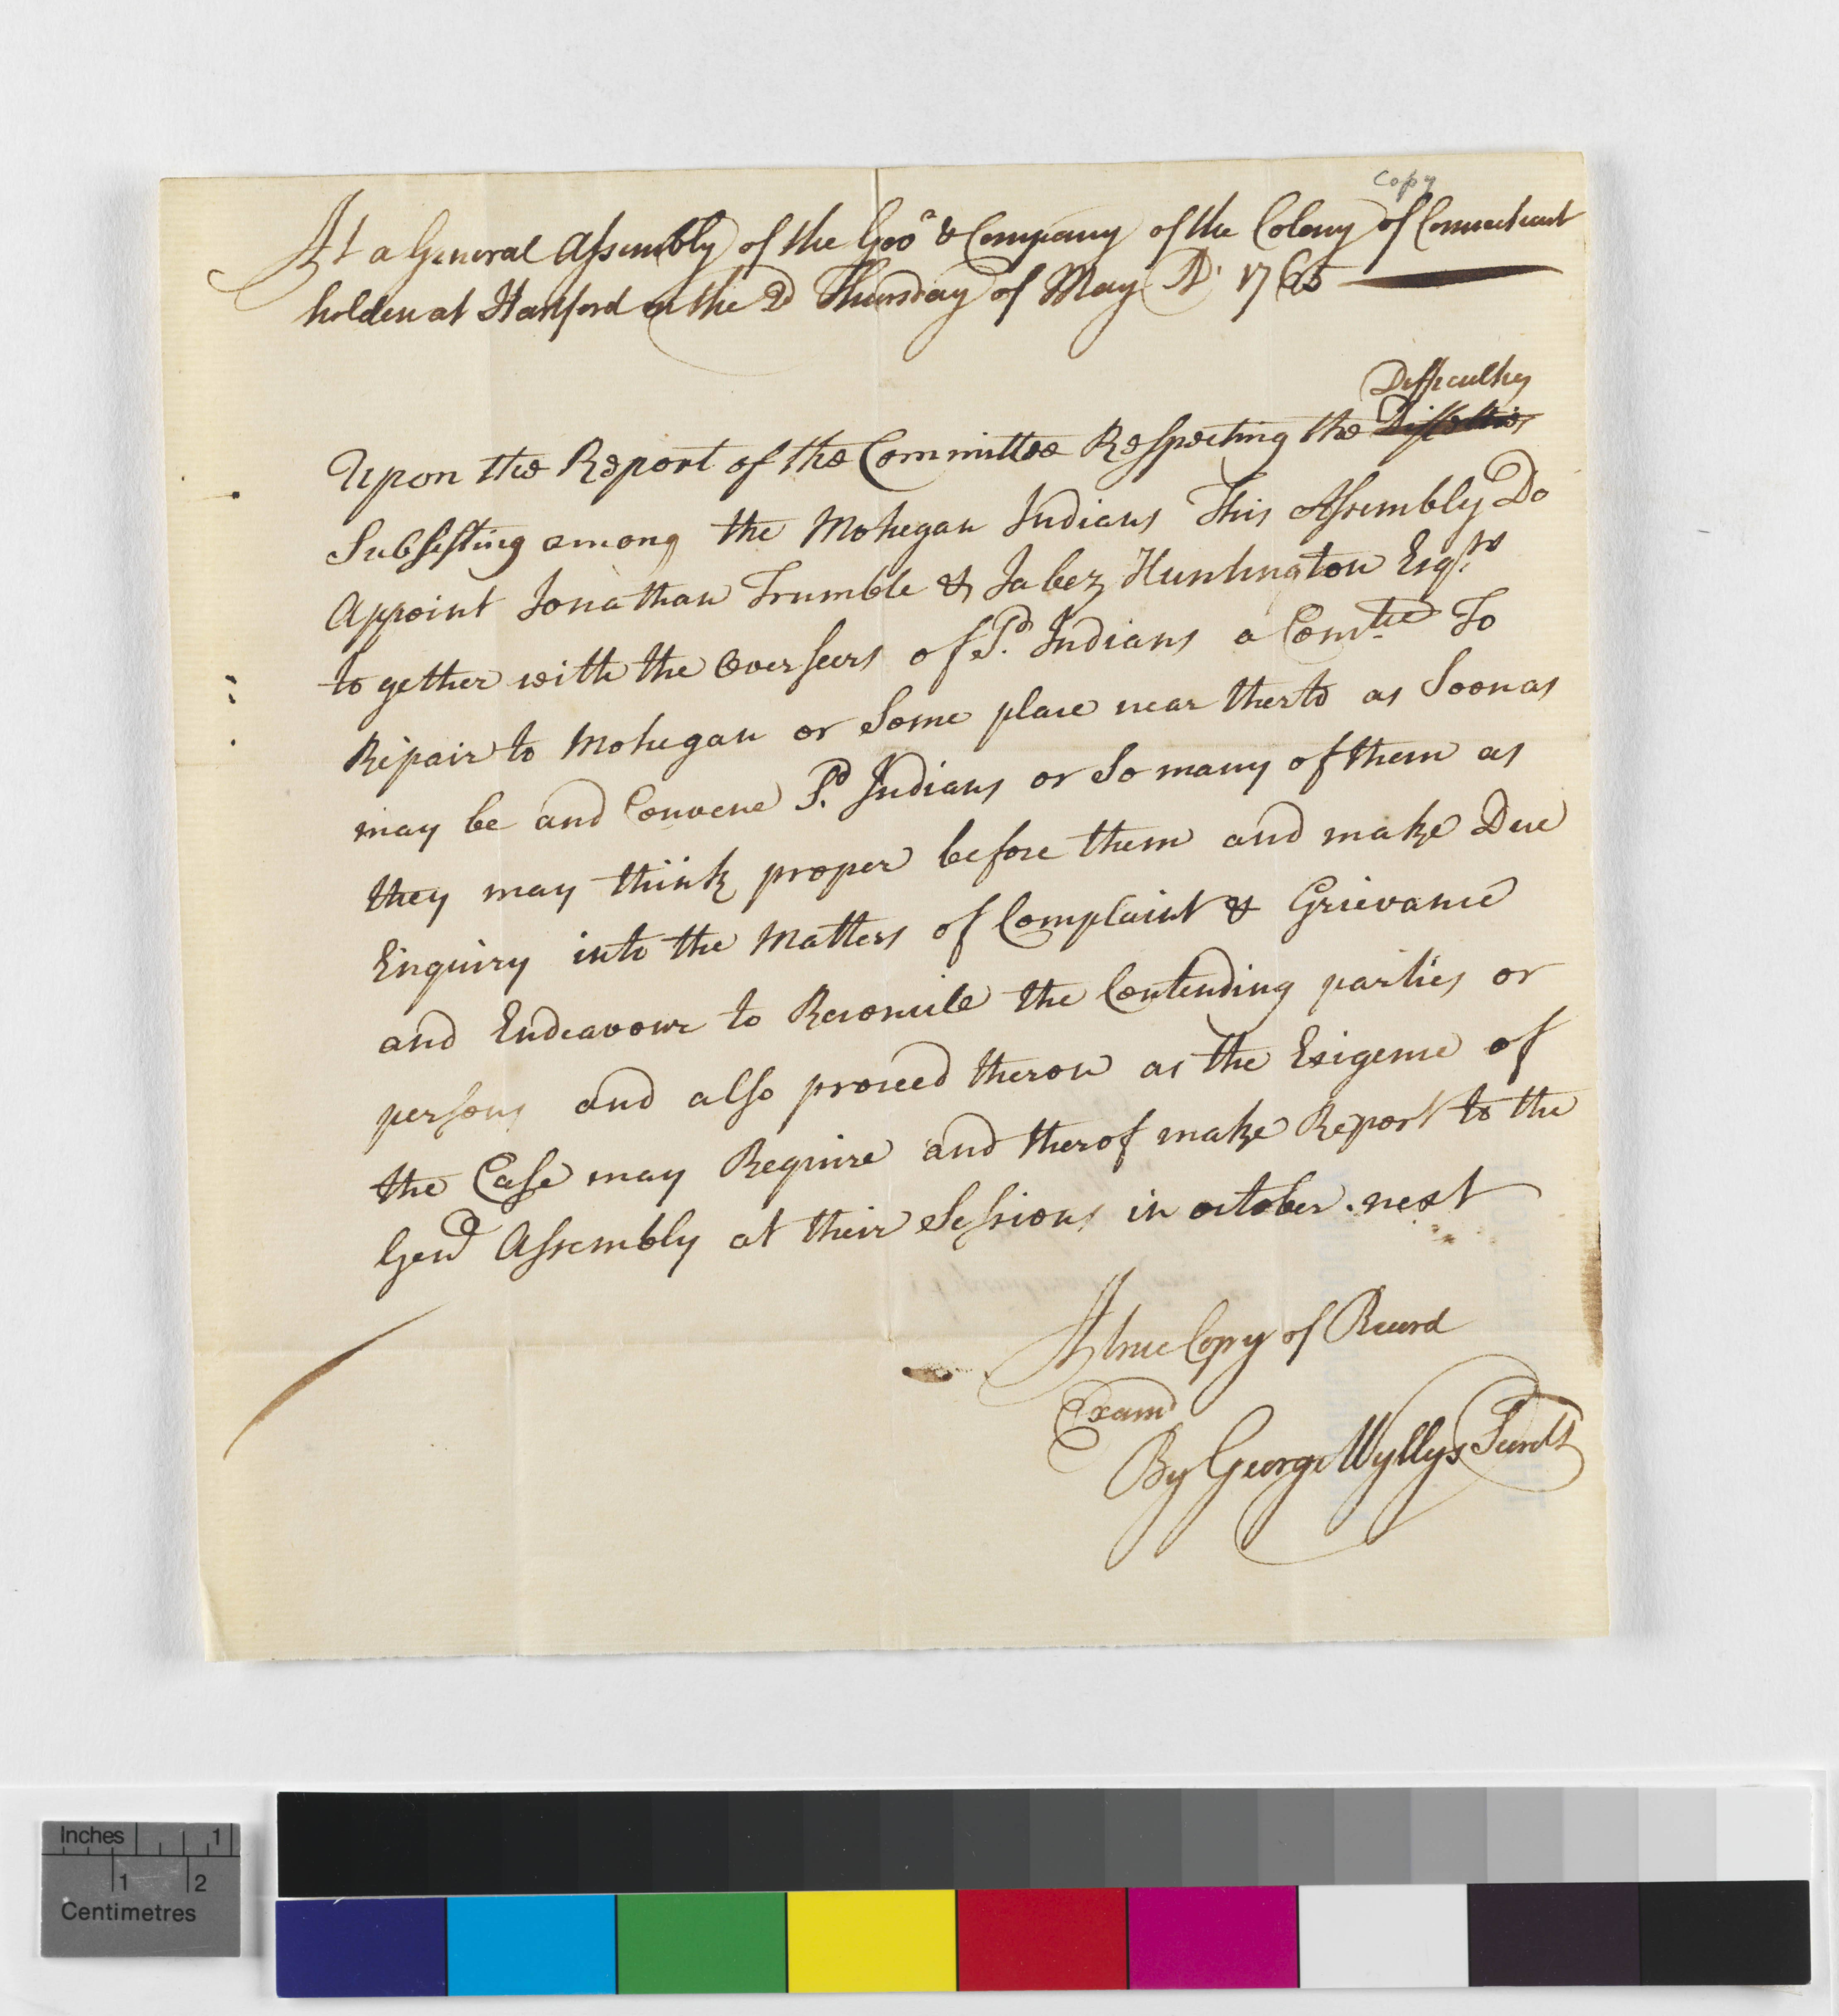 Copy
At a General Assembly of the Govr & Company of the Colony of Connecticut
holden at Hartford on the 2d Thursday of May AD 1765
Difficultys
Upon the Report of the Committee Respecting the
Subsisting among the Mohegan Indians This Assembly Do
Appoint Jonathan Trumble & Jabez Huntington Esqrs
together with the Overseers of Sd. Indians a Comtee To
Repair to Mohegan or Some place near therto as Soon as
may be and Convene Sd. Indians or So many of them as
they may think proper before them and make Due
Enquiry into the Matters of Complaint & Grievance
and Endeavour to Reconcile the Contending parties or
persons and also proceed theron as the Exigence of
the Case may Require and therof make Report to the
Genll Assembly at their Sessions in october next
A true Copy of Record
Examd
By George Wyllys Secretr
Inches 1
1 2
Centimetres